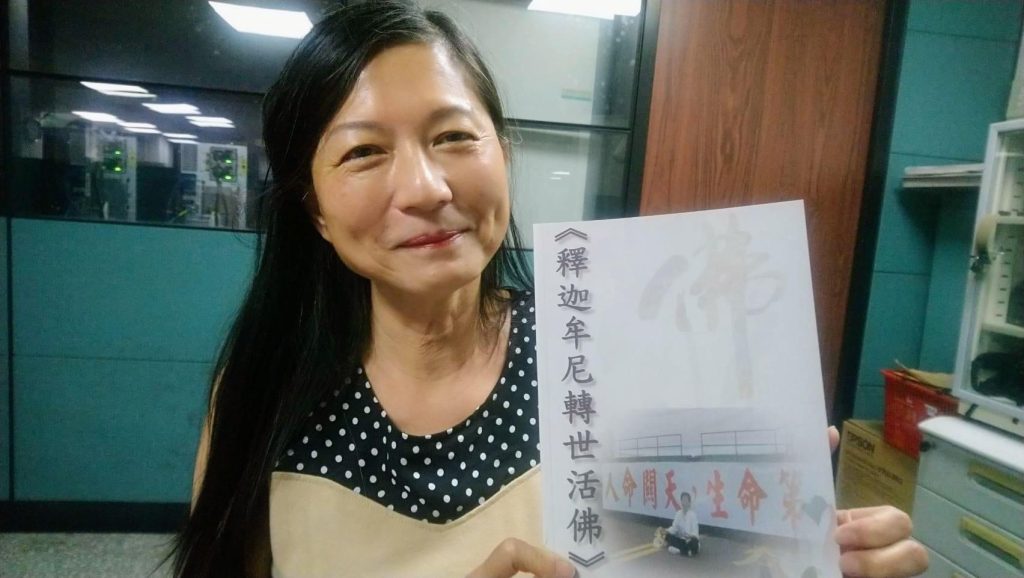 《釋迦牟尼轉世活佛》
佛
人命關天,生命第
EPSON